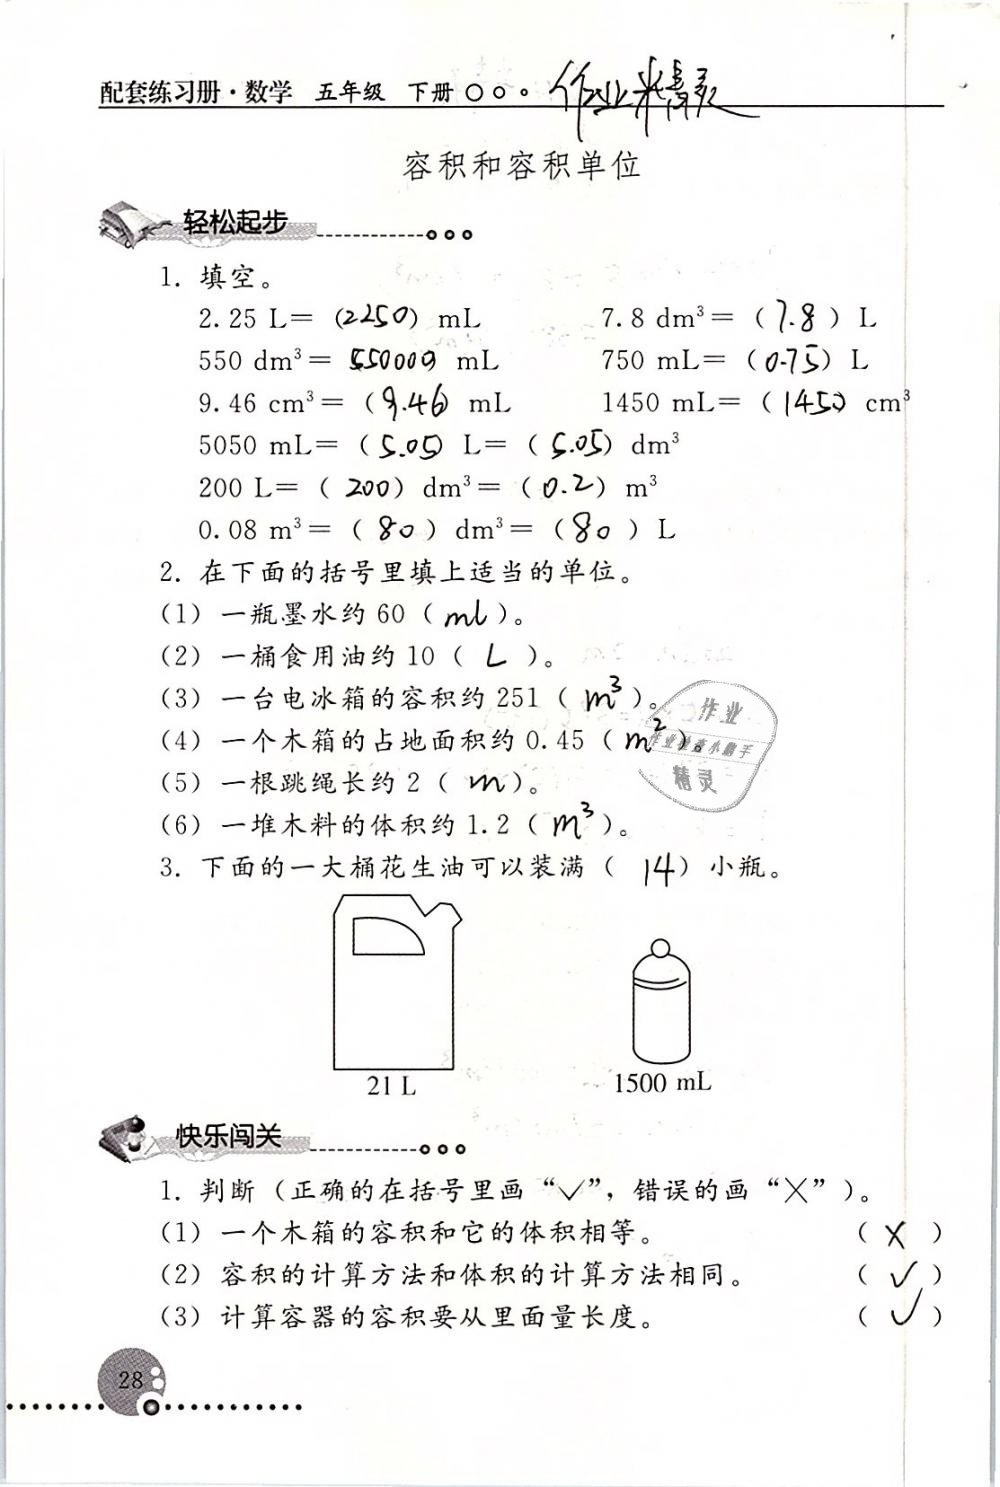 配套练习册·数学 五年级 下册 作业精灵
容积和容积单位
轻松起步
1. 填空。
2.25 L=(2250) mL 7.8 dm³=(7.8) L
550 dm³=550000 mL 750 mL=(0.75) L
9.46 cm³=(9.46 mL 1450 mL=(1450 cm³
5050 mL=(5.05) L=(5.05) dm³
200 L=(200) dm³=(0.2) m³
0.08 m³=(80) dm³=(80) L
2. 在下面的括号里填上适当的单位。
(1) 一瓶墨水约 60(ml)。
(2) 一桶食用油约 10(L)。
(3) 一台电冰箱的容积约 251(m³)。
(4) 一个木箱的占地面积约 0.45(m²)。
作业
精灵
(5) 一根跳绳长约 2(m)。
(6) 一堆木料的体积约 1.2(m³)。
3. 下面的一大桶花生油可以装满(14)小瓶。
21 L 1500 mL
快乐闯关
1. 判断(正确的在括号里画“✓”,错误的画“✕”)。
(1) 一个木箱的容积和它的体积相等。 (✕)
(2) 容积的计算方法和体积的计算方法相同。 (✓)
(3) 计算容器的容积要从里面量长度。 (✓)
28